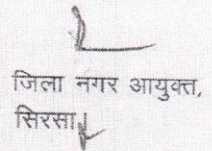 जिला नगर आयुक्त,
सिरसा